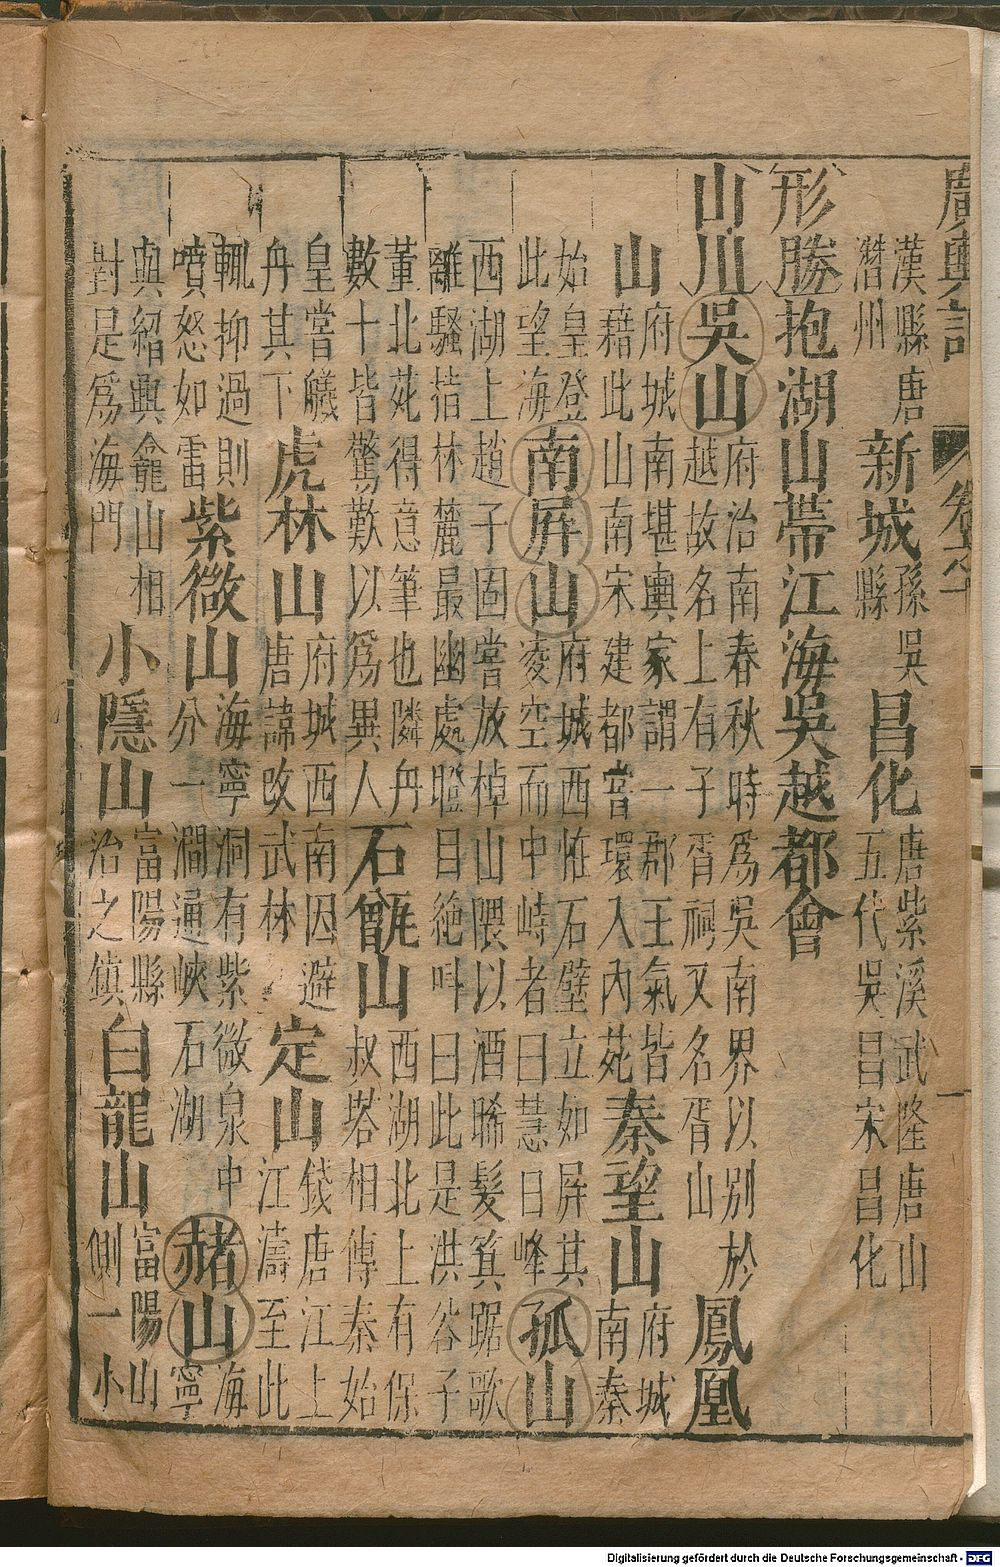 廣輿記 卷之十 一
漢縣唐潛州 新城縣 孫吳 昌化 唐紫溪武隆唐山五代吳昌宋昌化
形勝 抱湖山帶江海吳越都會
山川 吳山 府治南春秋時爲吳南界以别於越故名上有子胥祠又名胥山 鳳凰
山 府城南堪輿家謂一郡王氣皆藉此山南宋建都嘗環入內苑 秦望山 府城南秦
始皇登此望海 南屏山 府城西恠石壁立如屏其凌空而中峙者曰慧日峰 孤山
西湖上趙子固嘗放棹山隈以酒晞髮箕踞歌離騷指林麓最幽處瞪目絶呌曰此是洪谷子
董北苑得意筆也隣舟數十皆驚歎以爲異人 石甑山 西湖北上有保叔塔相傳秦始
皇嘗艤舟其下 虎林山 府城西南因避唐諱攺武林 定山 錢唐江上江濤至此
輒抑過則噴怒如雷 紫微山 海寧洞有紫微泉中分一澗通峽石湖 赭山 海寧
與紹興龕山相對是爲海門 小隱山 富陽縣治之鎮 白龍山 富陽山側一小
Digitalisierung gefördert durch die Deutsche Forschungsgemeinschaft - DFG